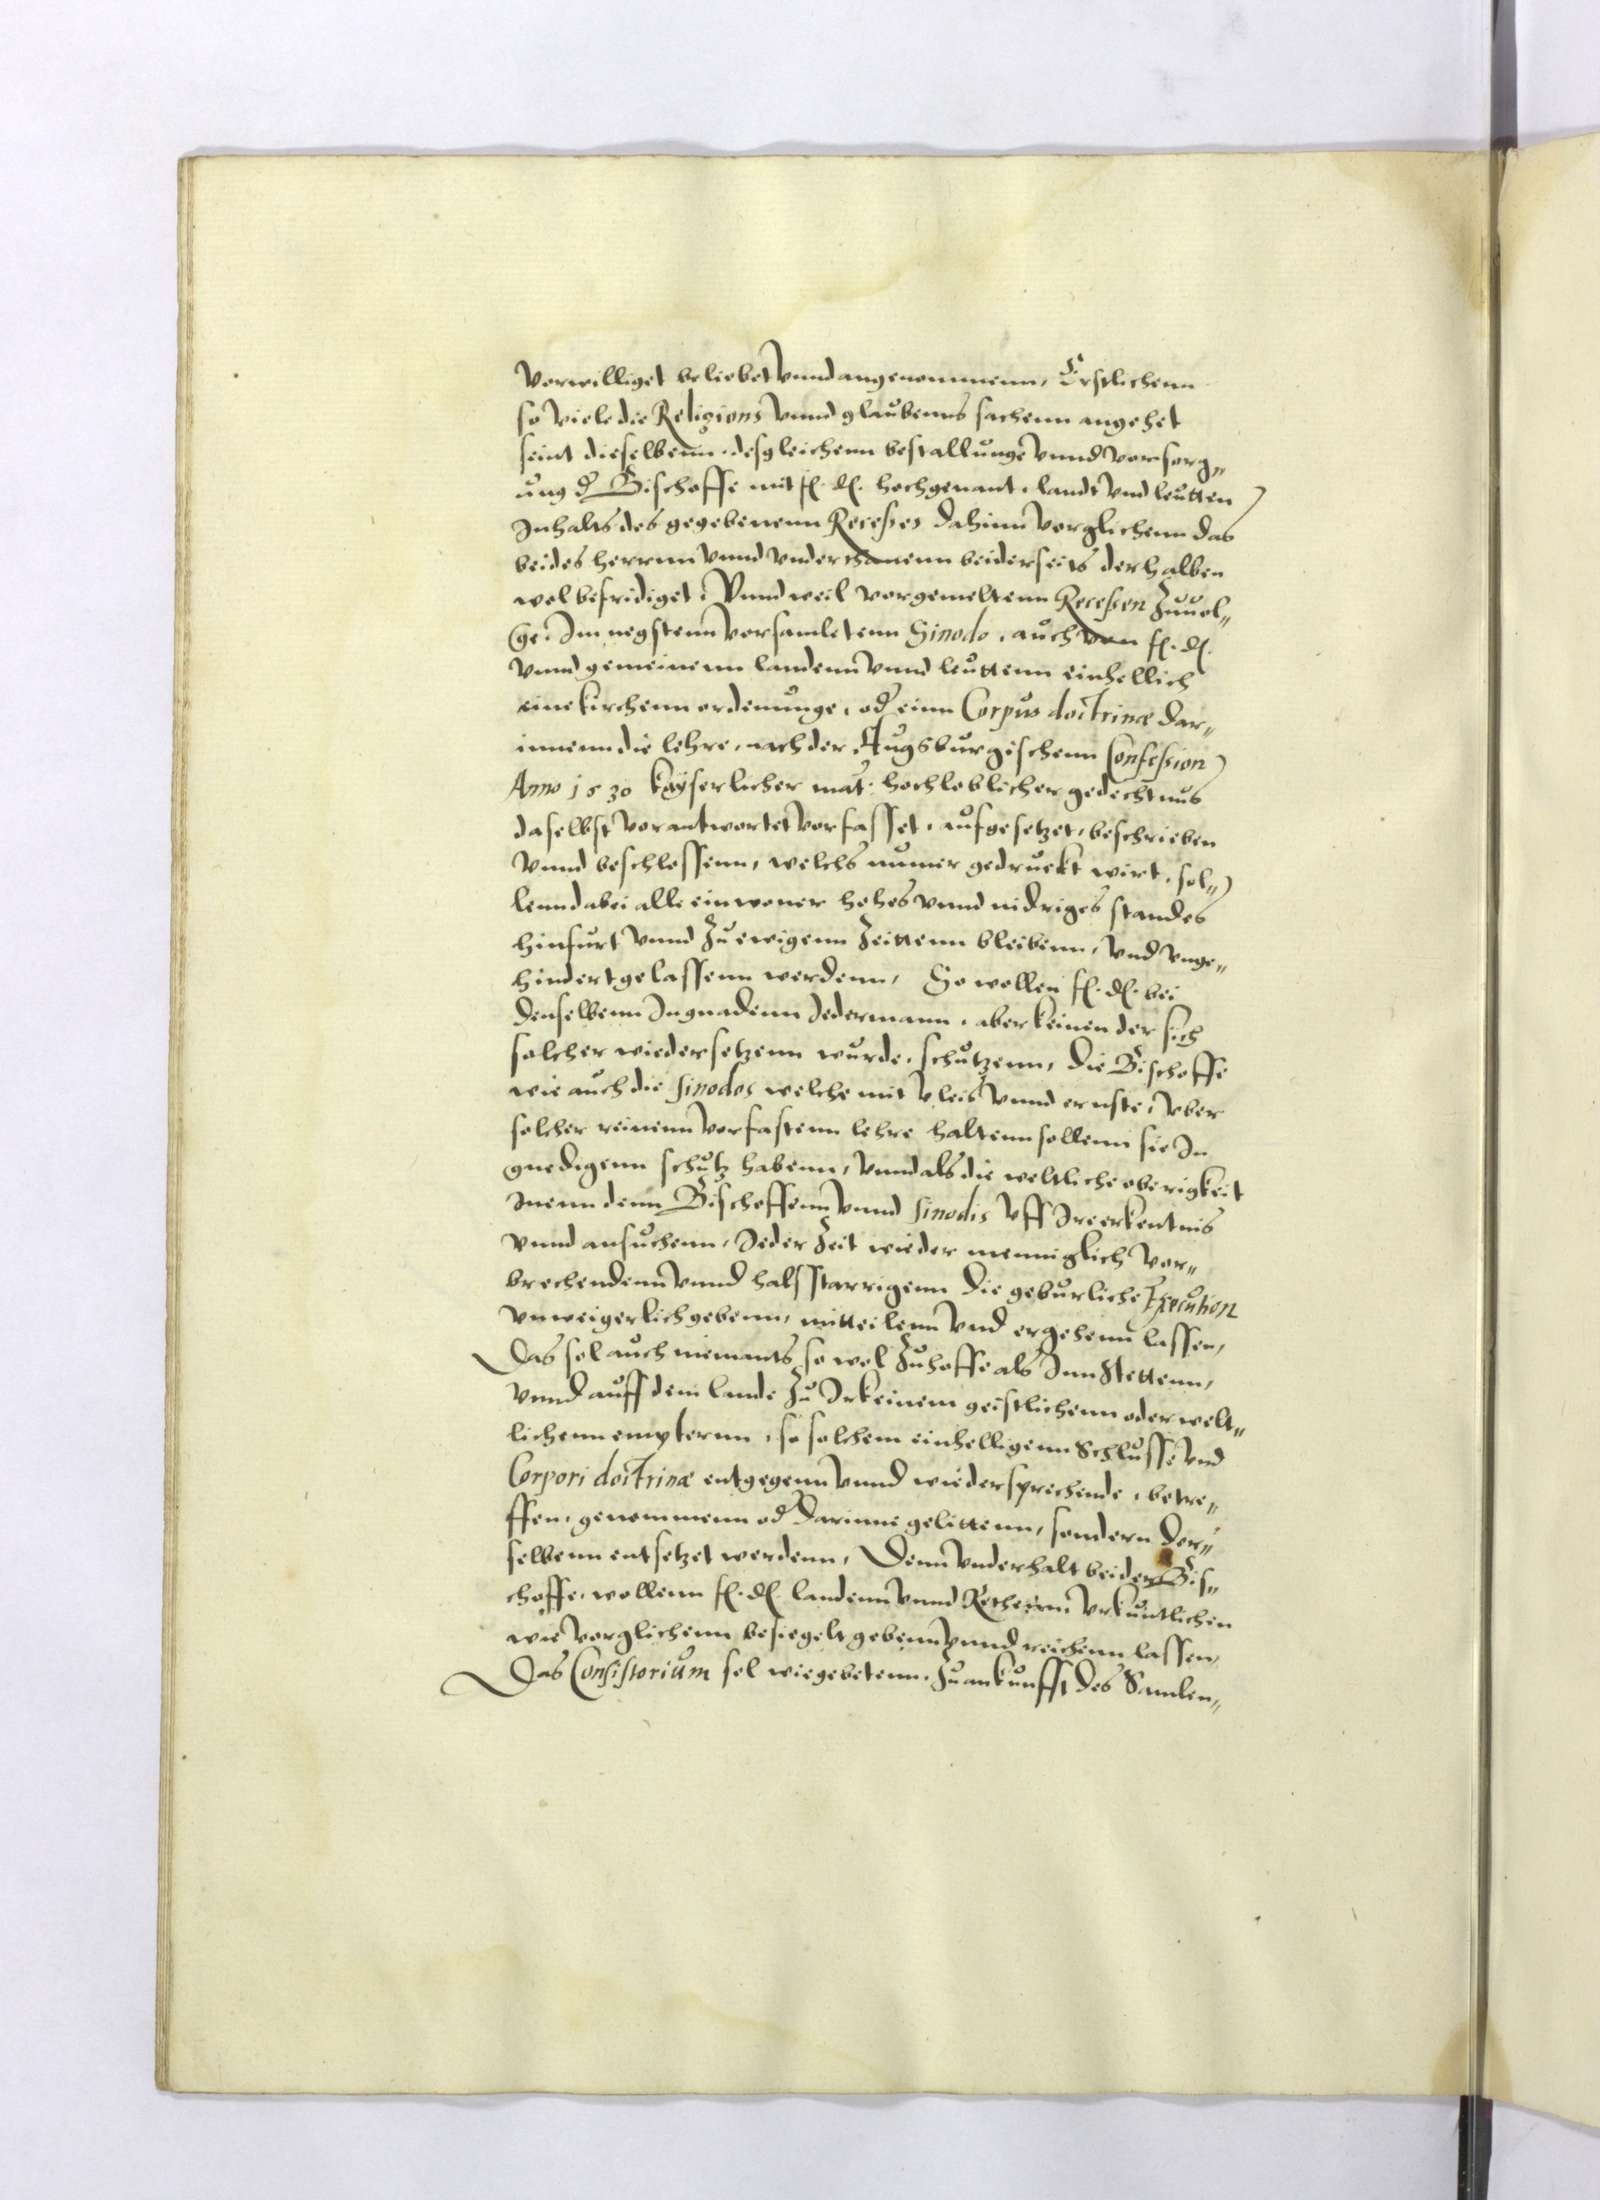 vorwilliget beliebet vnnd angenommenn, Erstlichenn
so viele die Religions vnnd glaubenns sachenn angehet
seint dieselbenn, desgleichenn bestallunge vnnd vorsorg„
ung d Bischoffe mit f. d. hochgenant, landt vnd leutten
Inhalts des gegebenenn Recesses dahinn vorglichenn das
beides herrnn vnnd vnderthanenn beiderseits derhalben
wol befridiget, Vnnd weil vorgemeltenn Recessen zuuol„
ge, Im negstenn vorsamletenn Sinodo, auch von f. d.
vnnd gemeinenn landenn vnnd leuttenn einhellich
eine kirchenn ordenunge, od einn Corpus doctrinæ dar„
innenn die lehre, nach der Augsburgischenn Confession
Anno 1530 kayserlicher mat. hochloblicher gedechtnus
daselbst vorantwortet vorfasset, aufgesetzet, beschrieben
vnnd beschlossenn, welchs numer gedruckt wirt, sol„
lenn dabei alle einwoner hohes vnnd nidriges standes
hinfurt vnnd zu ewigenn zeittenn bleibenn, vnd vnge„
hindert gelassenn werdenn, So wollen f. d. bei
denselbenn Inngnadenn Jedermann, aber keinen der sich
solcher wiedersetzenn wurde, schutzenn, die Bischoffe
wie auch die Sinodos welche mit vleis vnnd ernste, vber
solcher reinenn vorfastenn lehre haltenn sollenn sie In
gnedigenn schutz habenn, vnnd als die weltliche oberigkeit
Inenn denn Bischoffenn vnnd Sinodis vff Ire erkentnis
vnnd ansuchenn, Jeder zeit wieder menniglich vor„
brechendenn vnnd halsstarrigenn die geburliche Execution
vnweigerlich gebenn, mitteilenn vnd ergehenn lassen,
Das sol auch niemants so wol zu hoffe als Inn Stettenn,
vnnd auff dem lande zu Irkeinem geistlichenn oder welt„
lichenn empternn, so solchem einhelligenn Schlusse vnd
Corpori doctrinæ entgegenn vnnd wiedersprechende, betre„
ffen, genommenn od darinne gelittenn, sondern der„
selbenn entsetzet werdenn, Denn vnderhalt beider Bis„
choffe, wollenn f. d. landenn vnnd Rethenn vrkuntlichen
wie vorglichenn besiegelt gebenn vnnd reichenn lassen,
Das Consistorium sol wie gebetenn, zu ankunfft des Samlen„